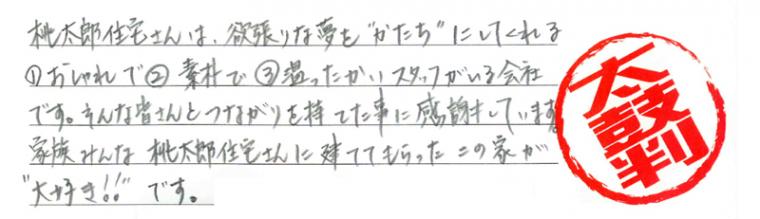 桃太郎住宅さんは、欲張りな夢を"かたち"にしてくれる
①おしゃれで②素朴で③温ったかいスタッフがいる会社
です。そんな皆さんとつながりを持てた事に感謝しています
家族みんな桃太郎住宅さんに建ててもらったこの家が
"大好き!!"です。
太鼓判